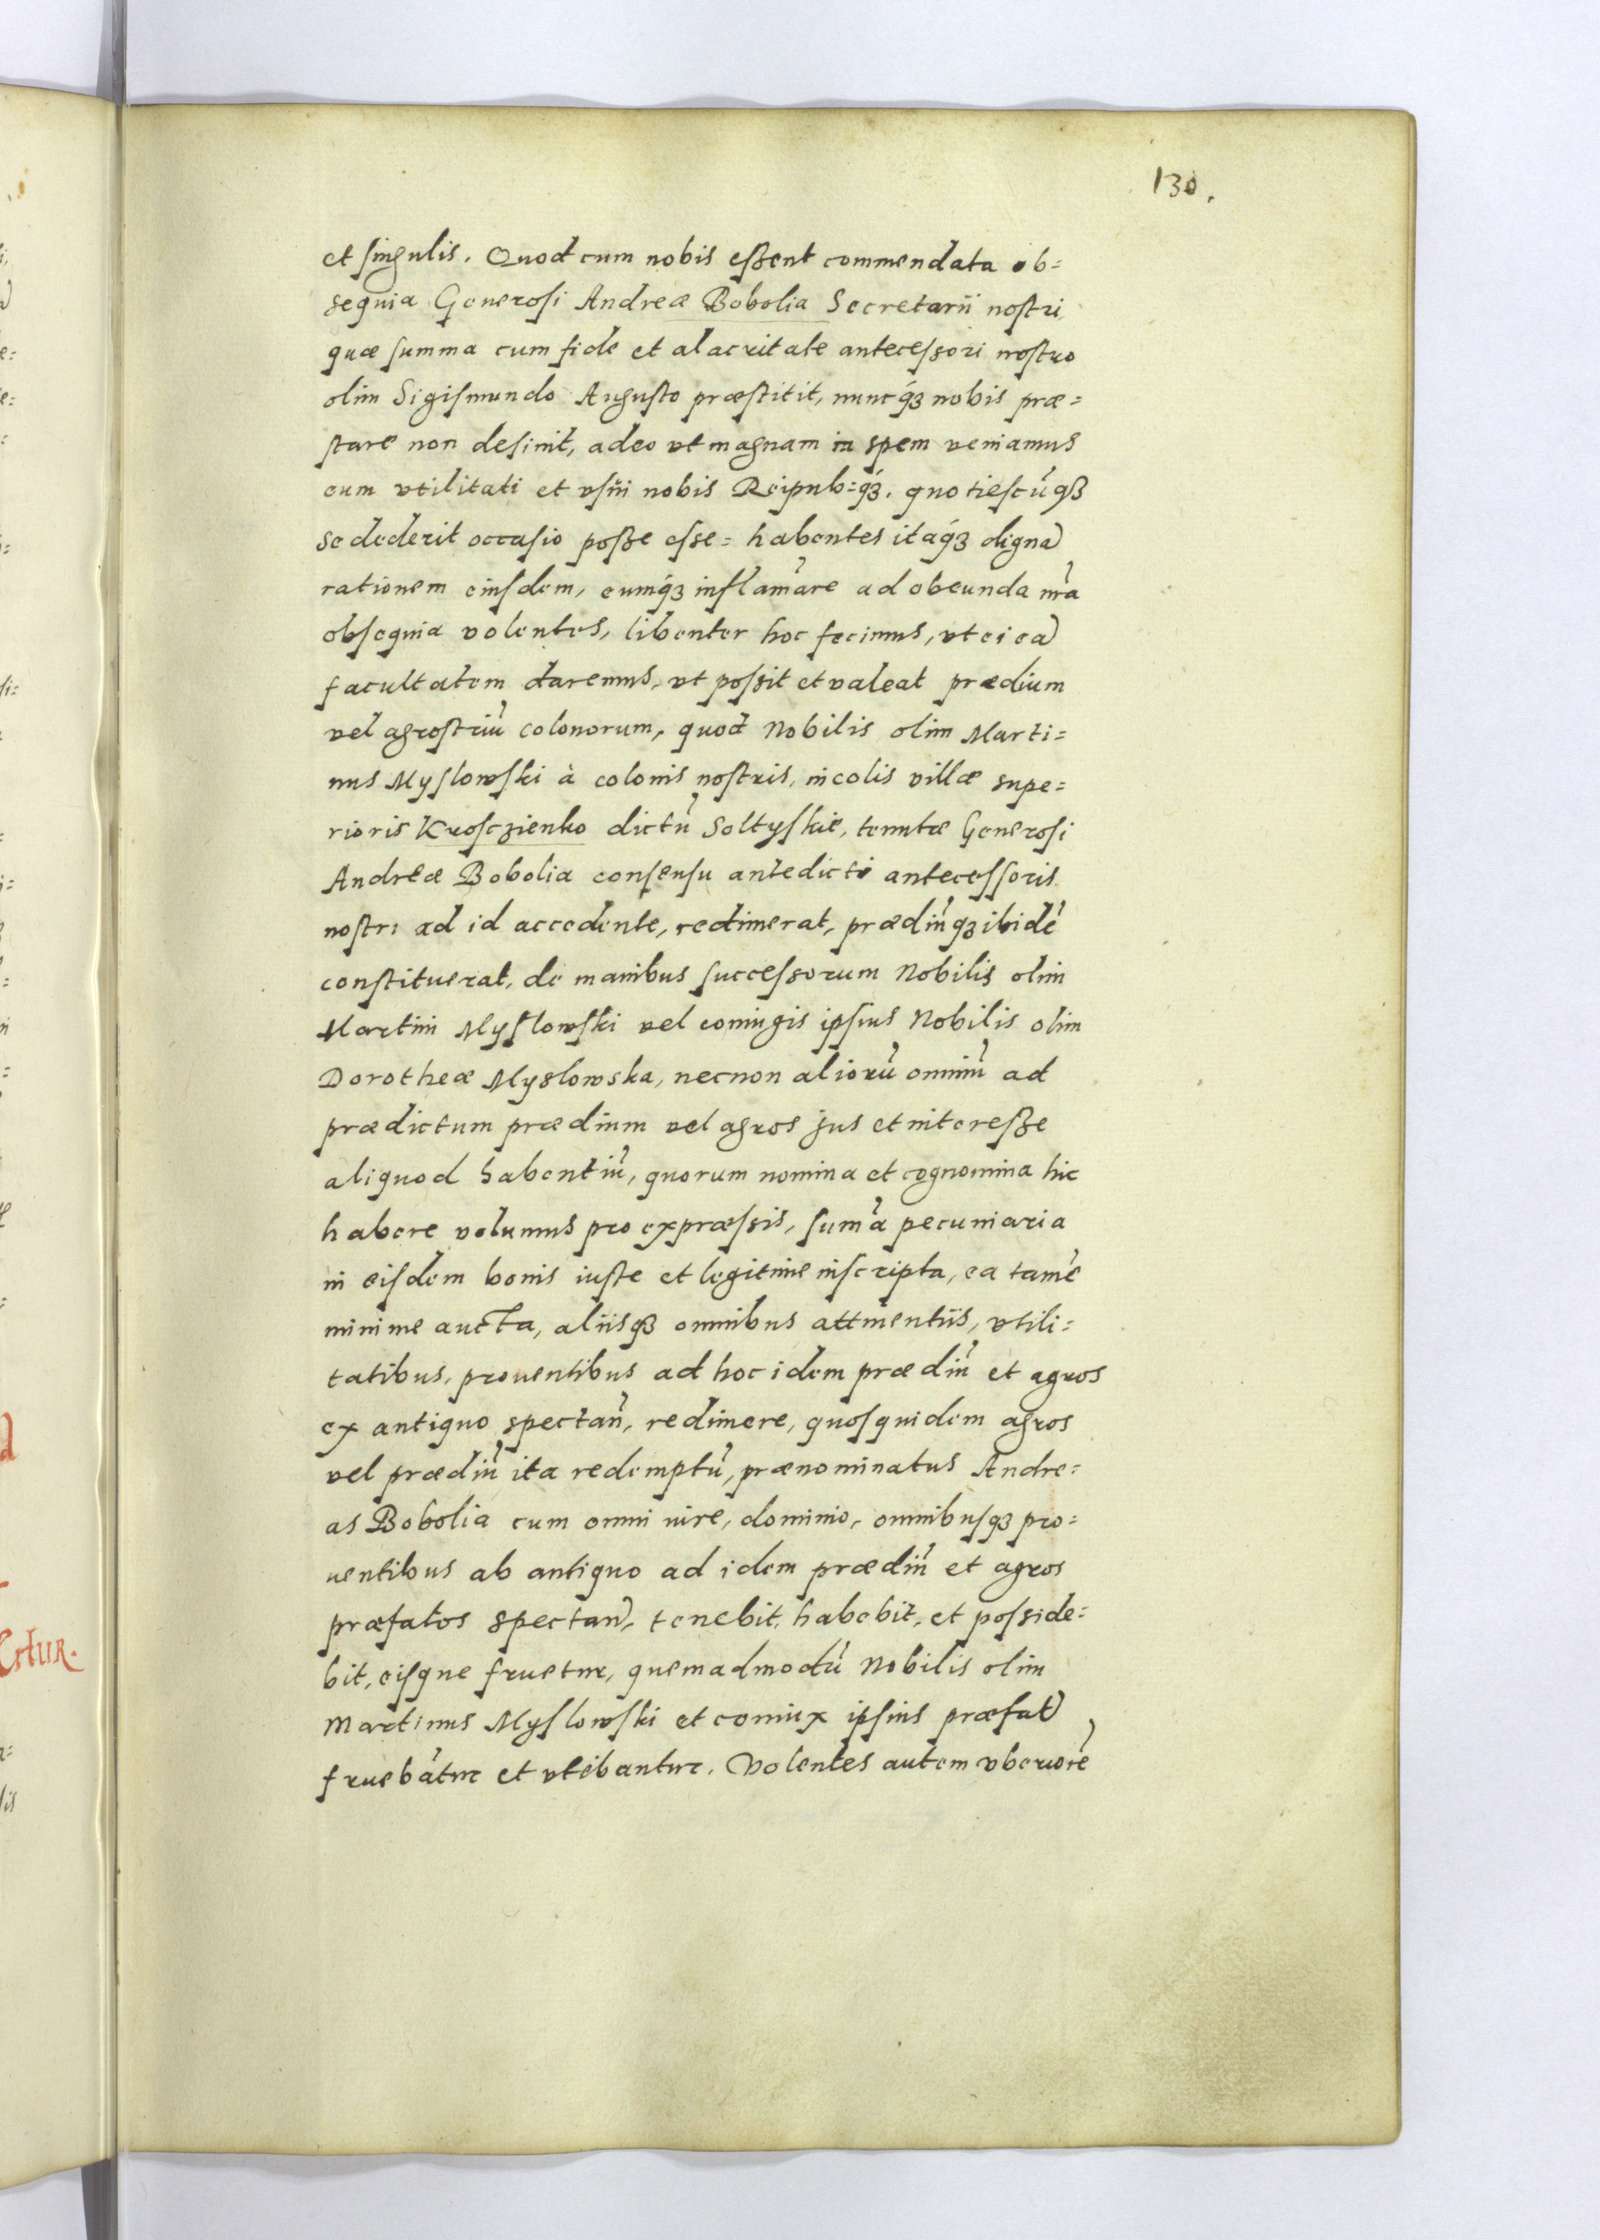 130.
et singulis. Quod cum nobis essent commendata ob=
sequia Generosi Andreæ Bobolia Secretarii nostri
quæ summa cum fide et alacritate antecessori nostro
olim Sigismundo Augusto præstitit, nuncq́ʒ nobis præ=
stare non desinit, adeo vt magnam in spem veniamus
eum vtilitati et vsui nobis Reipub=q́ʒ. quotiescũqʒ
se dederit occasio posse esse= habentes itaq́ʒ dignã
rationem eiusdem, eumq́ʒ inflam̃are ad obeunda nr̃a
obsequia volentes, libenter hoc fecimus, vt ei eã
facultatem daremus, vt possit et valeat prædium
vel agrostriũ colonorum, quod Nobilis olim Marti=
nus Myslowski à colonis nostris, incolis villæ supe=
rioris Krosczienko dictũ Soltyskie, tenutæ Generosi
Andreæ Bobolia consensu antedicti antecessoris
nostri ad id accedente, redimerat, prædiũqʒ ibidẽ
constituerat, de manibus successorum Nobilis olim
Martini Myslowski vel coniugis ipsius Nobilis olim
Dorotheæ Myslowska, necnon aliorũ omniũ ad
prædictum prædium vel agros jus et interesse
aliquod habentiũ, quorum nomina et cognomina hic
habere volumus pro expræssis, sum̃a pecuniaria
in eisdem bonis iuste et legitime inscripta, ea tamẽ
minime aucta, aliisqʒ omnibus attinentiis, vtili=
tatibus, prouentibus ad hoc idem prædiũ et agros
ex antiquo spectañ, redimere, quosquidem agros
vel prædiũ ita redemptũ, prænominatus Andre=
as Bobolia cum omni iure, dominio, omnibusqʒ pro=
uentibus ab antiquo ad idem prædiũ et agros
præfatos spectañ, tenebit, habebit, et posside=
bit, eisque fruetur, quemadmodũ Nobilis olim
Martinus Myslowski et coniux ipsius præfat̃
fruebãtur et vtebantur. Volentes autem vberiorẽ